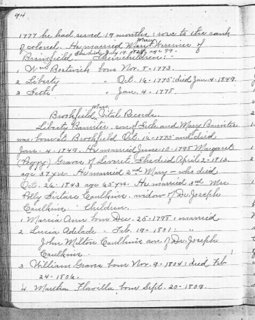 94
1777 he had served 19 months & was to the rank
of colonel. He married Mary
She died July 19, 18
Brimfield. Their children:
1. Wm Bostwich born Nov. 5-1773.
2. Liberty " Oct. 16-1775; died Jan. 4-1849.
3. Seth " Jan. 4-1778
Mass.
Brookfield Vital Records.
Liberty Bannister, son of Seth and Mary Bannister
was born at Brookfield Oct. 16-1775 and died
Jan. 4-1849. He married June 10-1795 Margaret
(Peggy) Graves of Leverett. She died April 2-1813.
age 37 yrs. He married 2nd Mary - who died
Oct. 26-1843 age 65 yrs. He married 3rd Mrs
Polly Caulkins, widow of Dr. Joseph
Caulkins. Children.
1. Marcia Ann born Dec. 25-1798; married
2. Lucia Adelade " Feb. 19-1801; "
John Milton Caulkins son of Dr Joseph
Caulkins.
3 William Graves born Nov. 9-1804; died Feb
24-1806.
4. Martha Flavilla born Sept. 20-1809.